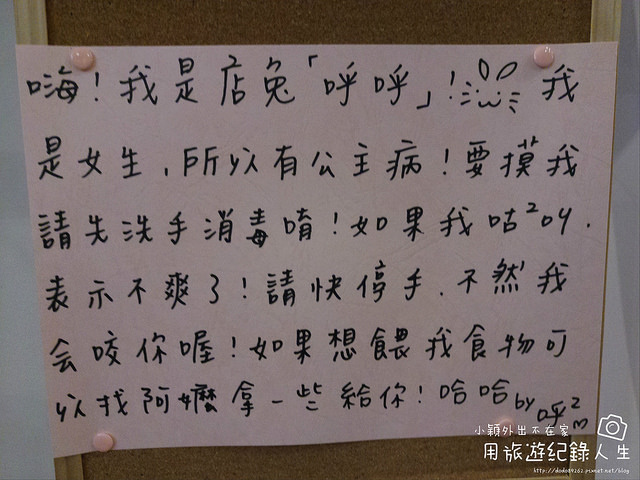 嗨！我是店兔「呼呼」！我
是女生，所以有公主病！要摸我
請先洗手消毒唷！如果我咕²叫．
表示不爽了！請快停手．不然我
会咬你喔！如果想餵我食物可
以找阿嬤拿一些給你！哈哈by呼²
小穎外出不在家
用旅遊紀錄人生